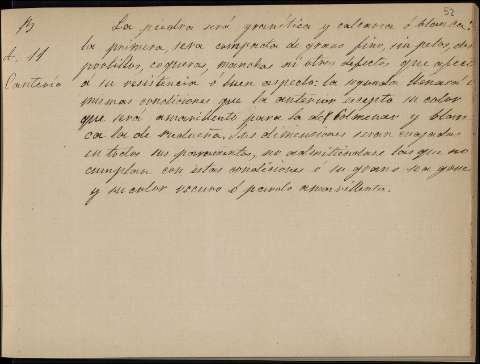 52
B
A. 11
Cantería
La piedra será granítica y calcarea ó blanca:
la primera, sera compacta de grano fino, sin pelos,
portillos, coqueras, manchas ni otros defectos que afec
á su resistencia ó buen aspecto: la segunda llenará
mismas condiciones que la anterior escepto su color
que será amarillento para la de Colmenar y blan
ca la de Redueña. Sus dimensiones seran
en todos sus paramentos, no admitiéndose las que no
cumplan con estas condiciones ó su grano sea grue
y su color oscuro ó pardo amarillento.